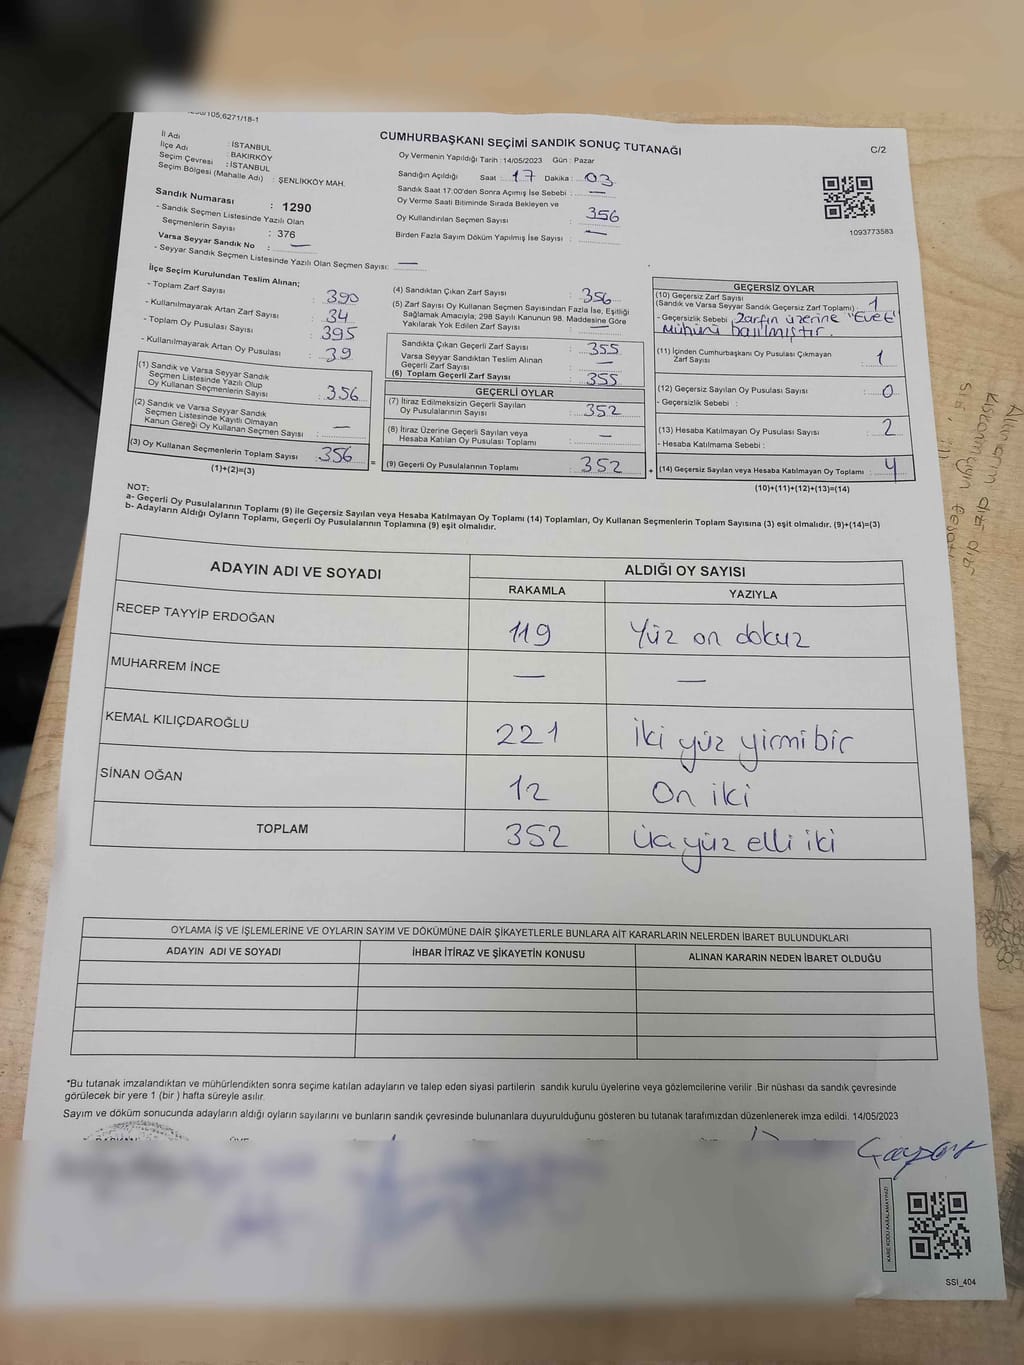 105,6271/18-1
CUMHURBAŞKANI SEÇİMİ SANDIK SONUÇ TUTANAĞI
C/2
İl Adı : İSTANBUL
İlçe Adı : BAKIRKÖY
Seçim Çevresi : İSTANBUL
Seçim Bölgesi (Mahalle Adı) : ŞENLİKKÖY MAH.
Oy Vermenin Yapıldığı Tarih : 14/05/2023 Gün : Pazar
Sandığın Açıldığı Saat : 17 Dakika : 03
Sandık Saat 17:00'den Sonra Açımış İse Sebebi : —
Oy Verme Saati Bitiminde Sırada Bekleyen ve
Oy Kullandırılan Seçmen Sayısı : 356
Birden Fazla Sayım Döküm Yapılmış İse Sayısı : —
1093773583
Sandık Numarası : 1290
- Sandık Seçmen Listesinde Yazılı Olan
Seçmenlerin Sayısı : 376
Varsa Seyyar Sandık No : —
- Seyyar Sandık Seçmen Listesinde Yazılı Olan Seçmen Sayısı: —
İlçe Seçim Kurulundan Teslim Alınan;
- Toplam Zarf Sayısı : 390
- Kullanılmayarak Artan Zarf Sayısı : 34
- Toplam Oy Pusulası Sayısı : 395
- Kullanılmayarak Artan Oy Pusulası : 39
(1) Sandık ve Varsa Seyyar Sandık
Seçmen Listesinde Yazılı Olup
Oy Kullanan Seçmenlerin Sayısı : 356
(2) Sandık ve Varsa Seyyar Sandık
Seçmen Listesinde Kayıtlı Olmayan
Kanun Gereği Oy Kullanan Seçmen Sayısı : —
(3) Oy Kullanan Seçmenlerin Toplam Sayısı : 356 =
(1)+(2)=(3)
(4) Sandıktan Çıkan Zarf Sayısı : 356
(5) Zarf Sayısı Oy Kullanan Seçmen Sayısından Fazla İse, Eşitliği
Sağlamak Amacıyla; 298 Sayılı Kanunun 98. Maddesine Göre
Yakılarak Yok Edilen Zarf Sayısı : —
Sandıkta Çıkan Geçerli Zarf Sayısı : 355
Varsa Seyyar Sandıktan Teslim Alınan
Geçerli Zarf Sayısı : —
(6) Toplam Geçerli Zarf Sayısı : 355
GEÇERLİ OYLAR
(7) İtiraz Edilmeksizin Geçerli Sayılan
Oy Pusulalarının Sayısı : 352
(8) İtiraz Üzerine Geçerli Sayılan veya
Hesaba Katılan Oy Pusulası Toplamı : —
(9) Geçerli Oy Pusulalarının Toplamı : 352 +
GEÇERSİZ OYLAR
(10) Geçersiz Zarf Sayısı
(Sandık ve Varsa Seyyar Sandık Geçersiz Zarf Toplamı) : 1
- Geçersizlik Sebebi : Zarfın üzerine "Evet"
mühürü basılmıştır.
(11) İçinden Cumhurbaşkanı Oy Pusulası Çıkmayan
Zarf Sayısı : 1
(12) Geçersiz Sayılan Oy Pusulası Sayısı : 0
- Geçersizlik Sebebi :
(13) Hesaba Katılmayan Oy Pusulası Sayısı : 2
- Hesaba Katılmama Sebebi :
(14) Geçersiz Sayılan veya Hesaba Katılmayan Oy Toplamı : 4
(10)+(11)+(12)+(13)=(14)
NOT:
a- Geçerli Oy Pusulalarının Toplamı (9) ile Geçersiz Sayılan veya Hesaba Katılmayan Oy Toplamı (14) Toplamları, Oy Kullanan Seçmenlerin Toplam Sayısına (3) eşit olmalıdır. (9)+(14)=(3)
b- Adayların Aldığı Oyların Toplamı, Geçerli Oy Pusulalarının Toplamına (9) eşit olmalıdır.
ADAYIN ADI VE SOYADI
ALDIĞI OY SAYISI
RAKAMLA YAZIYLA
RECEP TAYYİP ERDOĞAN 119 Yüz on dokuz
MUHARREM İNCE — —
KEMAL KILIÇDAROĞLU 221 İki yüz yirmi bir
SİNAN OĞAN 12 On iki
TOPLAM 352 Üç yüz elli iki
OYLAMA İŞ VE İŞLEMLERİNE VE OYLARIN SAYIM VE DÖKÜMÜNE DAİR ŞİKAYETLERLE BUNLARA AİT KARARLARIN NELERDEN İBARET BULUNDUKLARI
ADAYIN ADI VE SOYADI İHBAR İTİRAZ VE ŞİKAYETİN KONUSU ALINAN KARARIN NEDEN İBARET OLDUĞU
*Bu tutanak imzalandıktan ve mühürlendikten sonra seçime katılan adayların ve talep eden siyasi partilerin sandık kurulu üyelerine veya gözlemcilerine verilir .Bir nüshası da sandık çevresinde
görülecek bir yere 1 (bir ) hafta süreyle asılır.
Sayım ve döküm sonucunda adayların aldığı oyların sayılarını ve bunların sandık çevresinde bulunanlara duyurulduğunu gösteren bu tutanak tarafımızdan düzenlenerek imza edildi. 14/05/2023
KARE KODU KARALAMAYINIZ!
SSİ_404